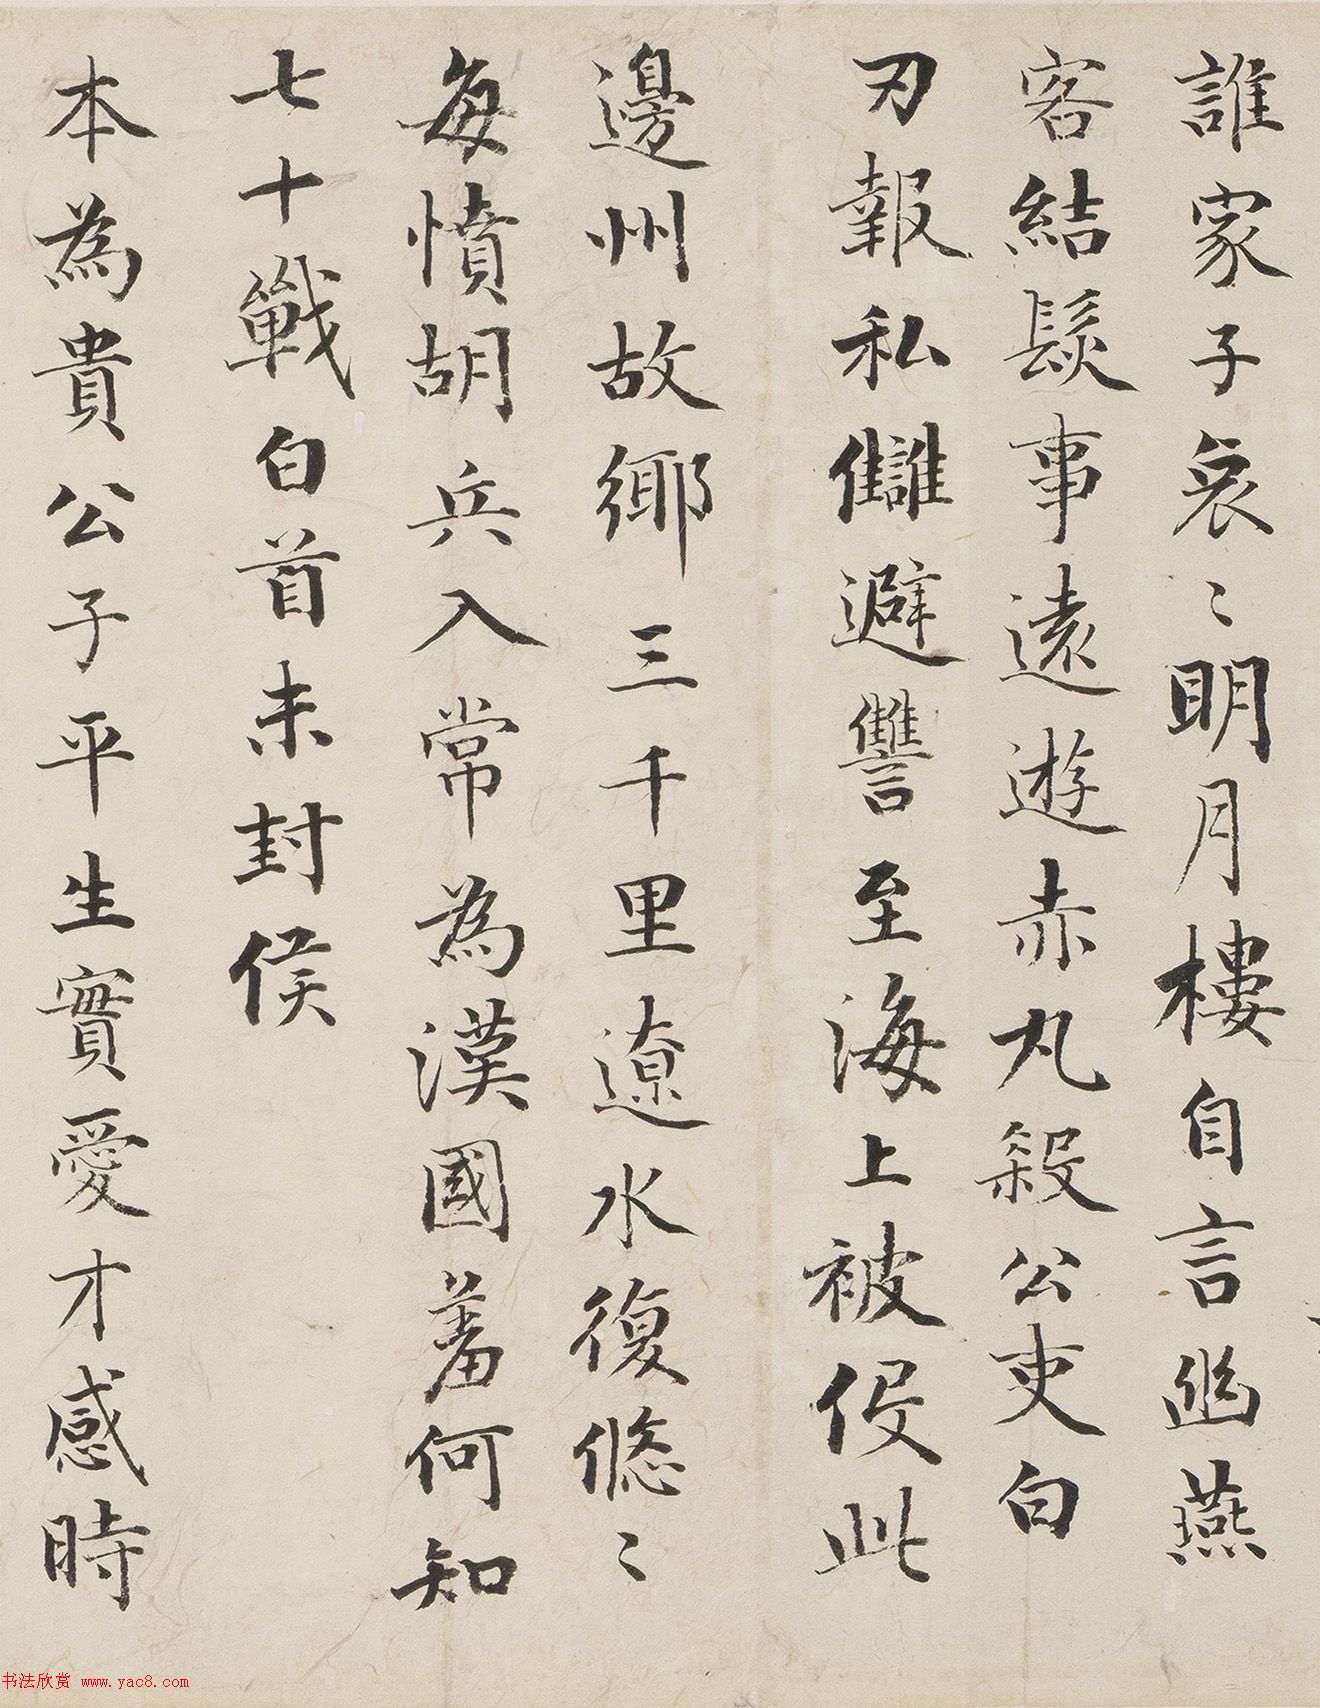 誰家子哀〻明月樓自言幽燕
客結髮事遠遊赤丸殺公吏白
刃報私讎避讐至海上被役此
邊州故鄉三千里遼水復悠〻
每憤胡兵入常為漢國羞何知
七十戰白首未封侯
本為貴公子平生實愛才感時
书法欣赏 www.yac8.com